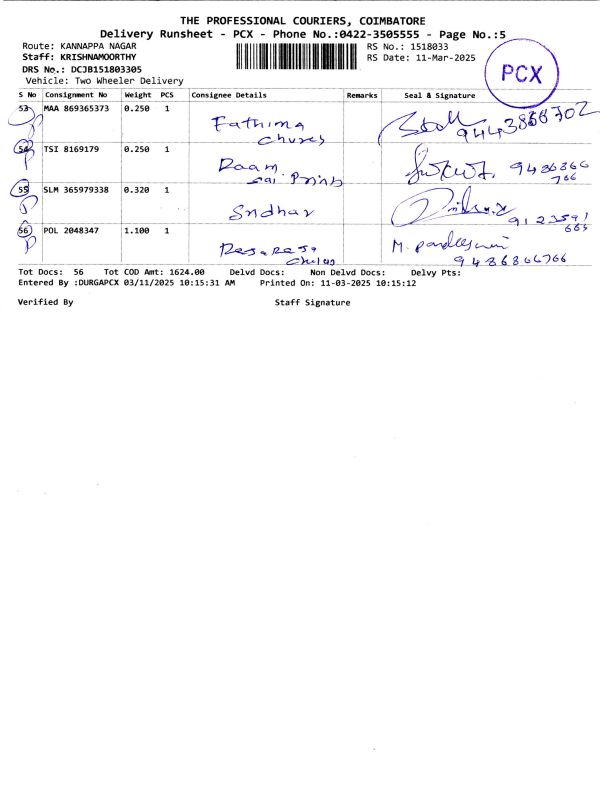 THE PROFESSIONAL COURIERS, COIMBATORE
Delivery Runsheet - PCX - Phone No.:0422-3505555 - Page No.:5
Route: KANNAPPA NAGAR
RS No.: 1518033
Staff: KRISHNAMOORTHY
RS Date: 11-Mar-2025
DRS No.: DCJB151803305
Vehicle: Two Wheeler Delivery
PCX
S No Consignment No Weight PCS Consignee Details Remarks Seal & Signature
53 MAA 869365373 0.250 1 Fathima
54 TSI 8169179 0.250 1 Raam
Sai Prints
9486866
766
55 SLM 365979338 0.320 1 Sridhar
9123591
56 POL 2048347 1.100 1
9486866766
Tot Docs: 56 Tot COD Amt: 1624.00 Delvd Docs: Non Delvd Docs: Delvy Pts:
Entered By :DURGAPCX 03/11/2025 10:15:31 AM Printed On: 11-03-2025 10:15:12
Verified By Staff Signature